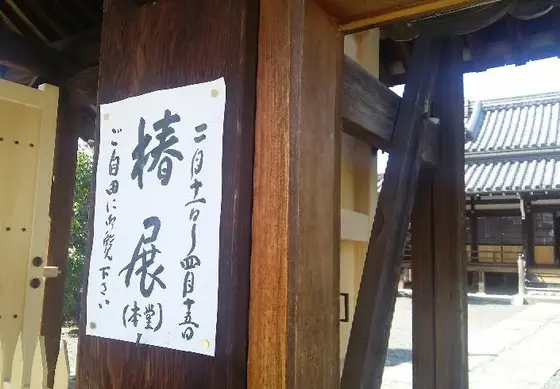 二月十一日〜四月十五日
椿展
(本堂)
ご自由に御覧下さい